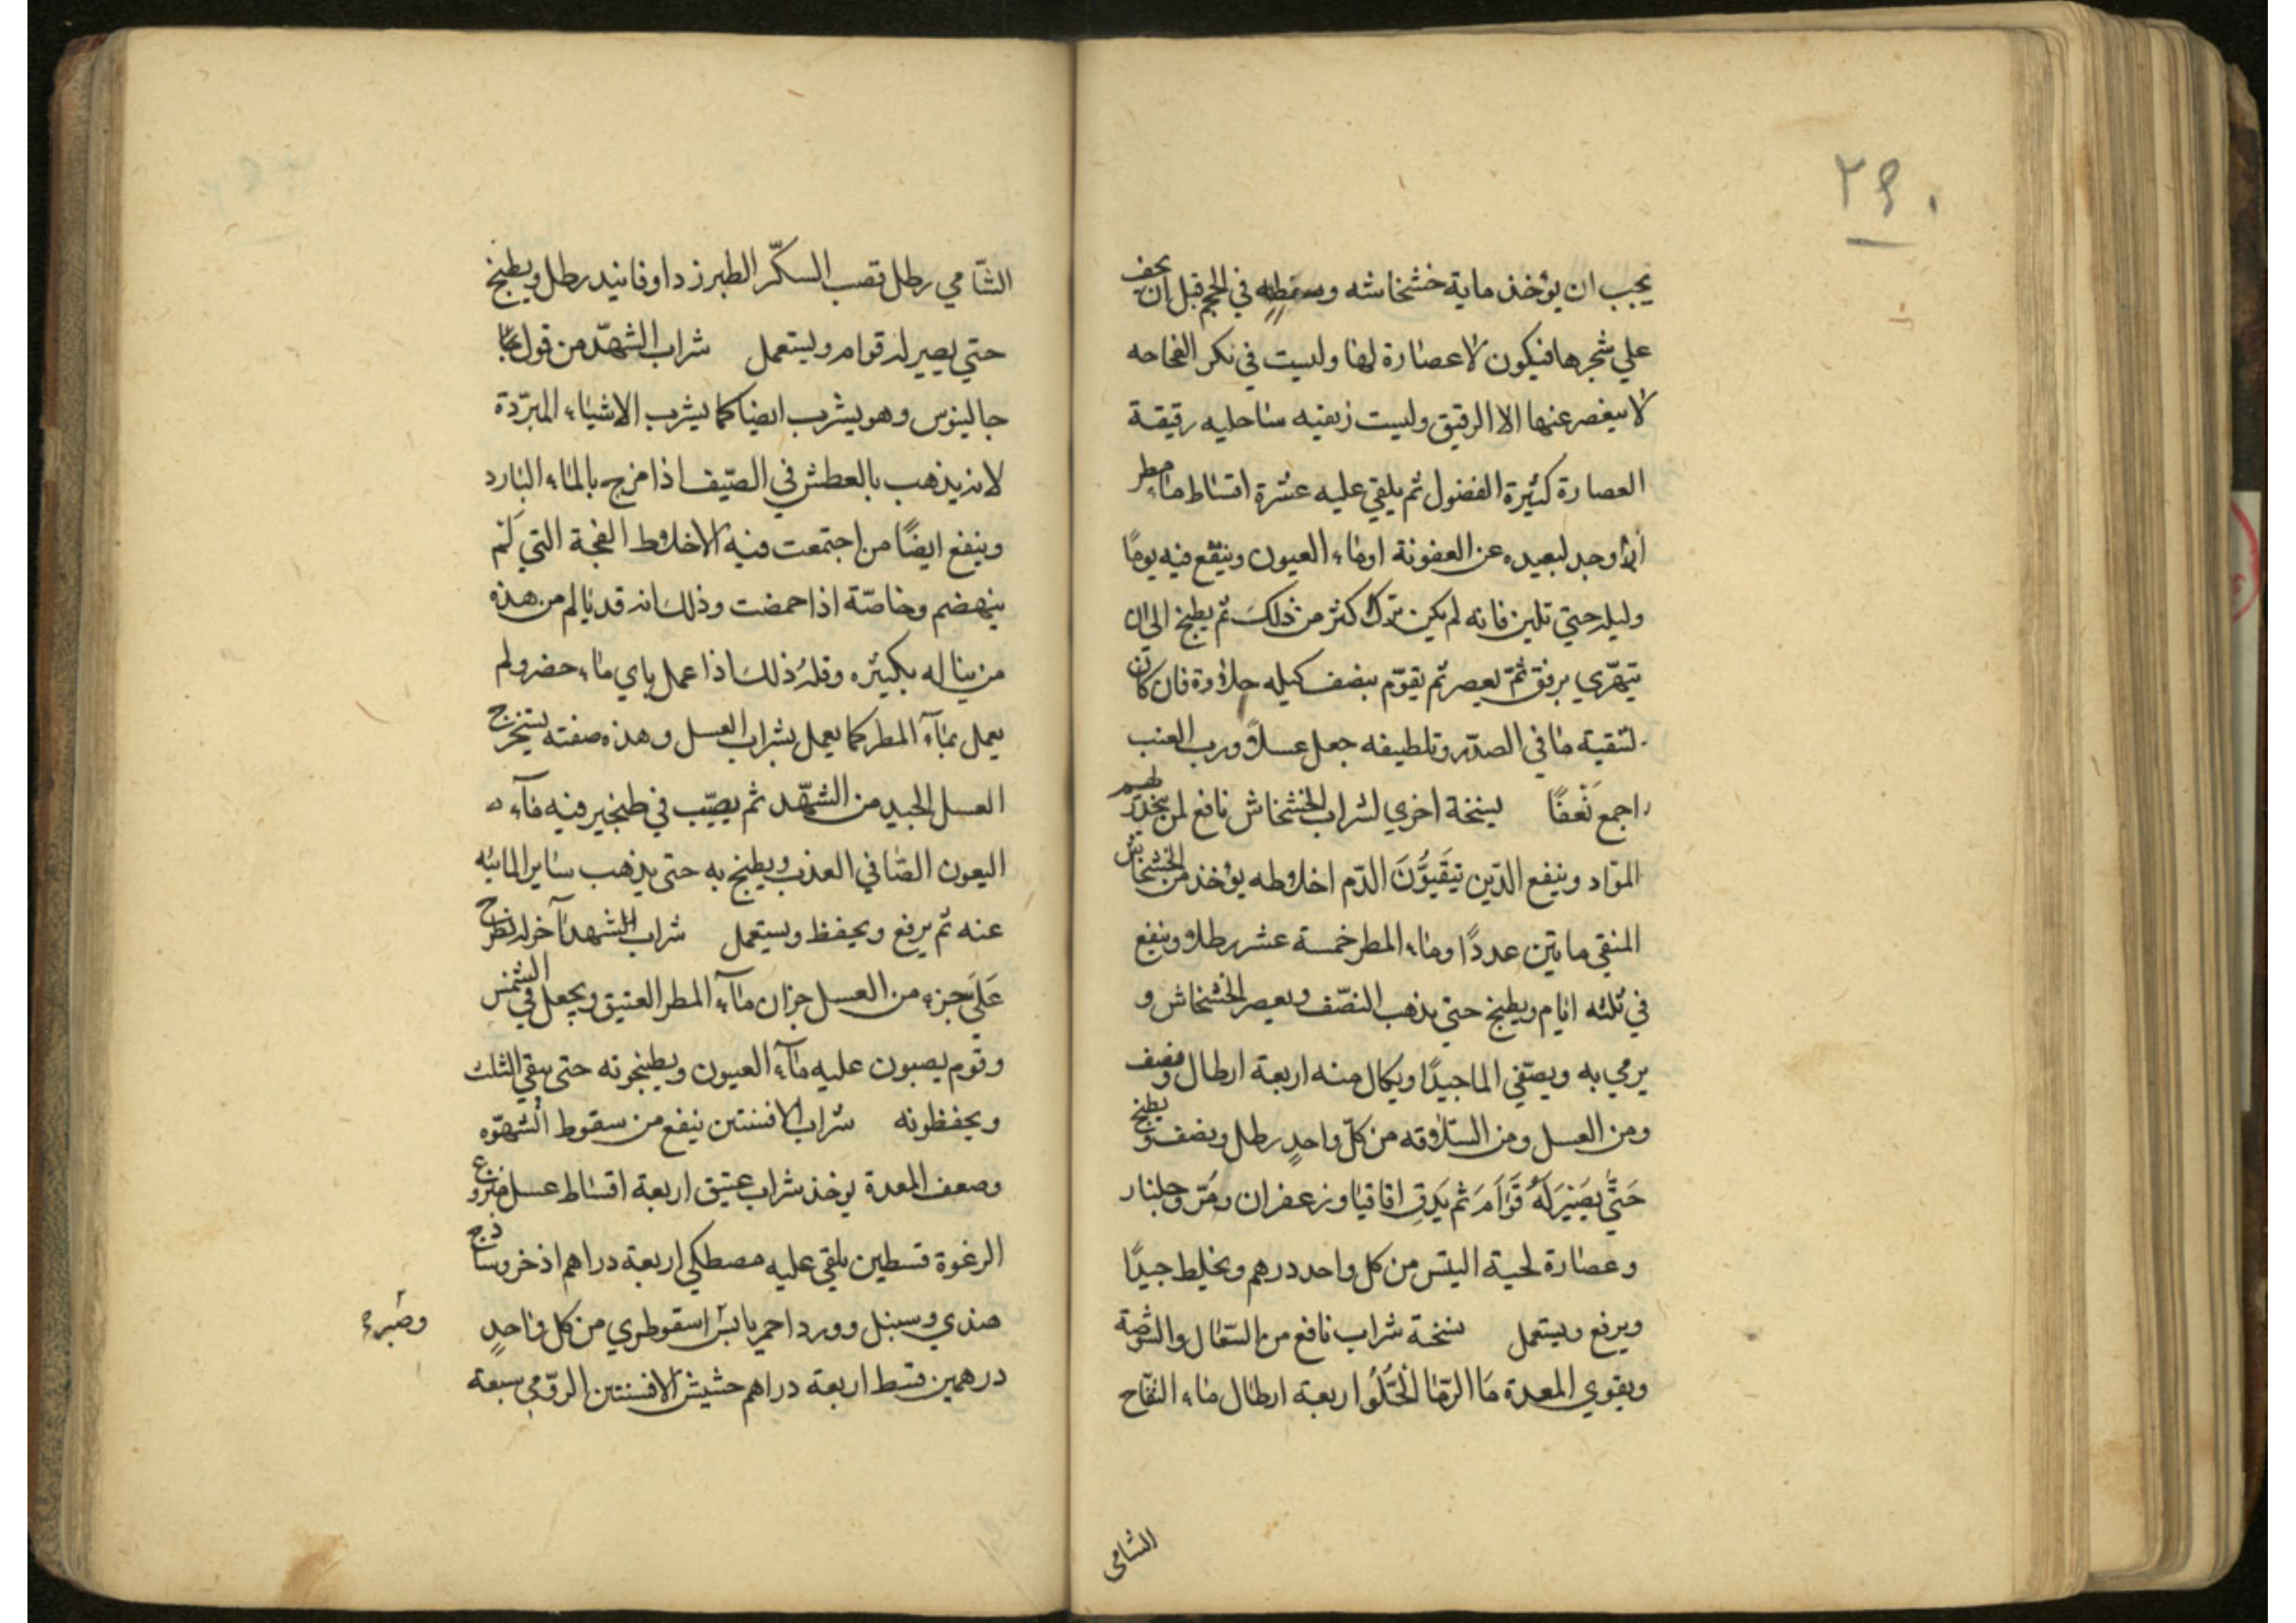 ٢٩٠
يجب ان يؤخذ ماية خشخاشه وسطه في الحجم قبل ان يجف
علي شجرها فيكون لا عصارة لها وليست في نكر الفجاحه
لا سعصر عنها الا الرقيق وليست زيفيه ساحليه رقيقة
العصارة كثيرة الفضول ثم يلقي عليه عشرة اقساط ماء مطر
ان وجد لبعيده عن العفونة اوماء العيون وينقع فيه يومًا
وليله حتي تلين فانه لم يكن ترك اكثر من ذلك ثم يطبخ الى ان
يتهّري برفق ثمّ يعصر ثم يقوّم بنصف كيله حلاوة فان كان
لتنقية ما في الصدر وتلطيفه جعل عسلًا ورب العنب
اجمع نَعفًا نسخة اخري لشراب الخشخاش نافع لمن يتحدّر لهم
الموّاد وينفع الذّين يَتَقَيؤُنَ الدّم اخلاطه يؤخذ من الخشخاش
المنقي ماتين عددًا وماء المطر خمسة عشر رطلا وينقع
في ثلثه ايام ويطبخ حتي يذهب النصّف ويعصر الخشخاش و
يرمي به ويصّفي الما جيدًا ويكال منه اربعة ارطال ونصف
ومن العسل ومن السّلاوقه من كلّ واحدٍ رطل ونصف ويطبخ
حَتيَّ يَصَيْرَ لَهُ قَوَاَمَ ثم يَدقِ اقاقيا وزعفران ومرّ وجلنار
وعصارة لحية التيس من كل واحد درهم ويخلط جيدًا
ويرفع ويستعمل نسخة شراب نافع من السّعال والشّوصة
ويقوي المعدة مَا الرمّا الحُلُو اربعة ارطال ماء التفّاح
الشامى
الشّامي رطل قصب السكّر الطبرزد اوفانيد رطل ويطبخ
حتي يصير له قوام ويستعمل شراب الشهدّ من قول
جالينوس وهو يشرب ايضا كما يشرب الاشياء المبرّدة
لانه يذهب بالعطش في الصّيف اذا مزج بالماء البارد
وينفع ايضًا من اجتمعت فيه الاخلاط الفجة التي لَم
ينهضم وخاصّة اذا حمضت وذلك انه قد يالم من هذه
من يناله بكثيره وقلهُ ذلك اذا عمل باي ماء حضر ولم
يعمل بمآء المطر كما يعمل بشراب العسل وهذه صفته يستخرج
العسل الجيد من الشهّد ثم يصّب في طنجير فيه مآء
اليعون الصّافي العذب ويطبخ به حتى يذهب ساير المائيه
عنه ثم يرفع ويحفظ ويستعمل شراب الشهد آخر له يطرح
عَلَي جزء من العسل جزان مآء المطر العتيق ويجعل في الشمس
وقوم يصبون عليه مآء العيون ويطبخونه حتى يبقي الثلث
ويحفظونه شراب الافسنتين ينفع من سقوط الشهوّه
وضعف المعدة يوخذ شراب عتيق اربعة اقساط عسل منزوع
الرغوة قسطين يلقي عليه مصطكي اربعة دراهم اذخر وساذج
هندي وسنبل وورد احمر يابس اسقوطري من كل واحدٍ
وصبره
درهمين قسط اربعة دراهم حشيش الافسنتين الروّمي سبعة